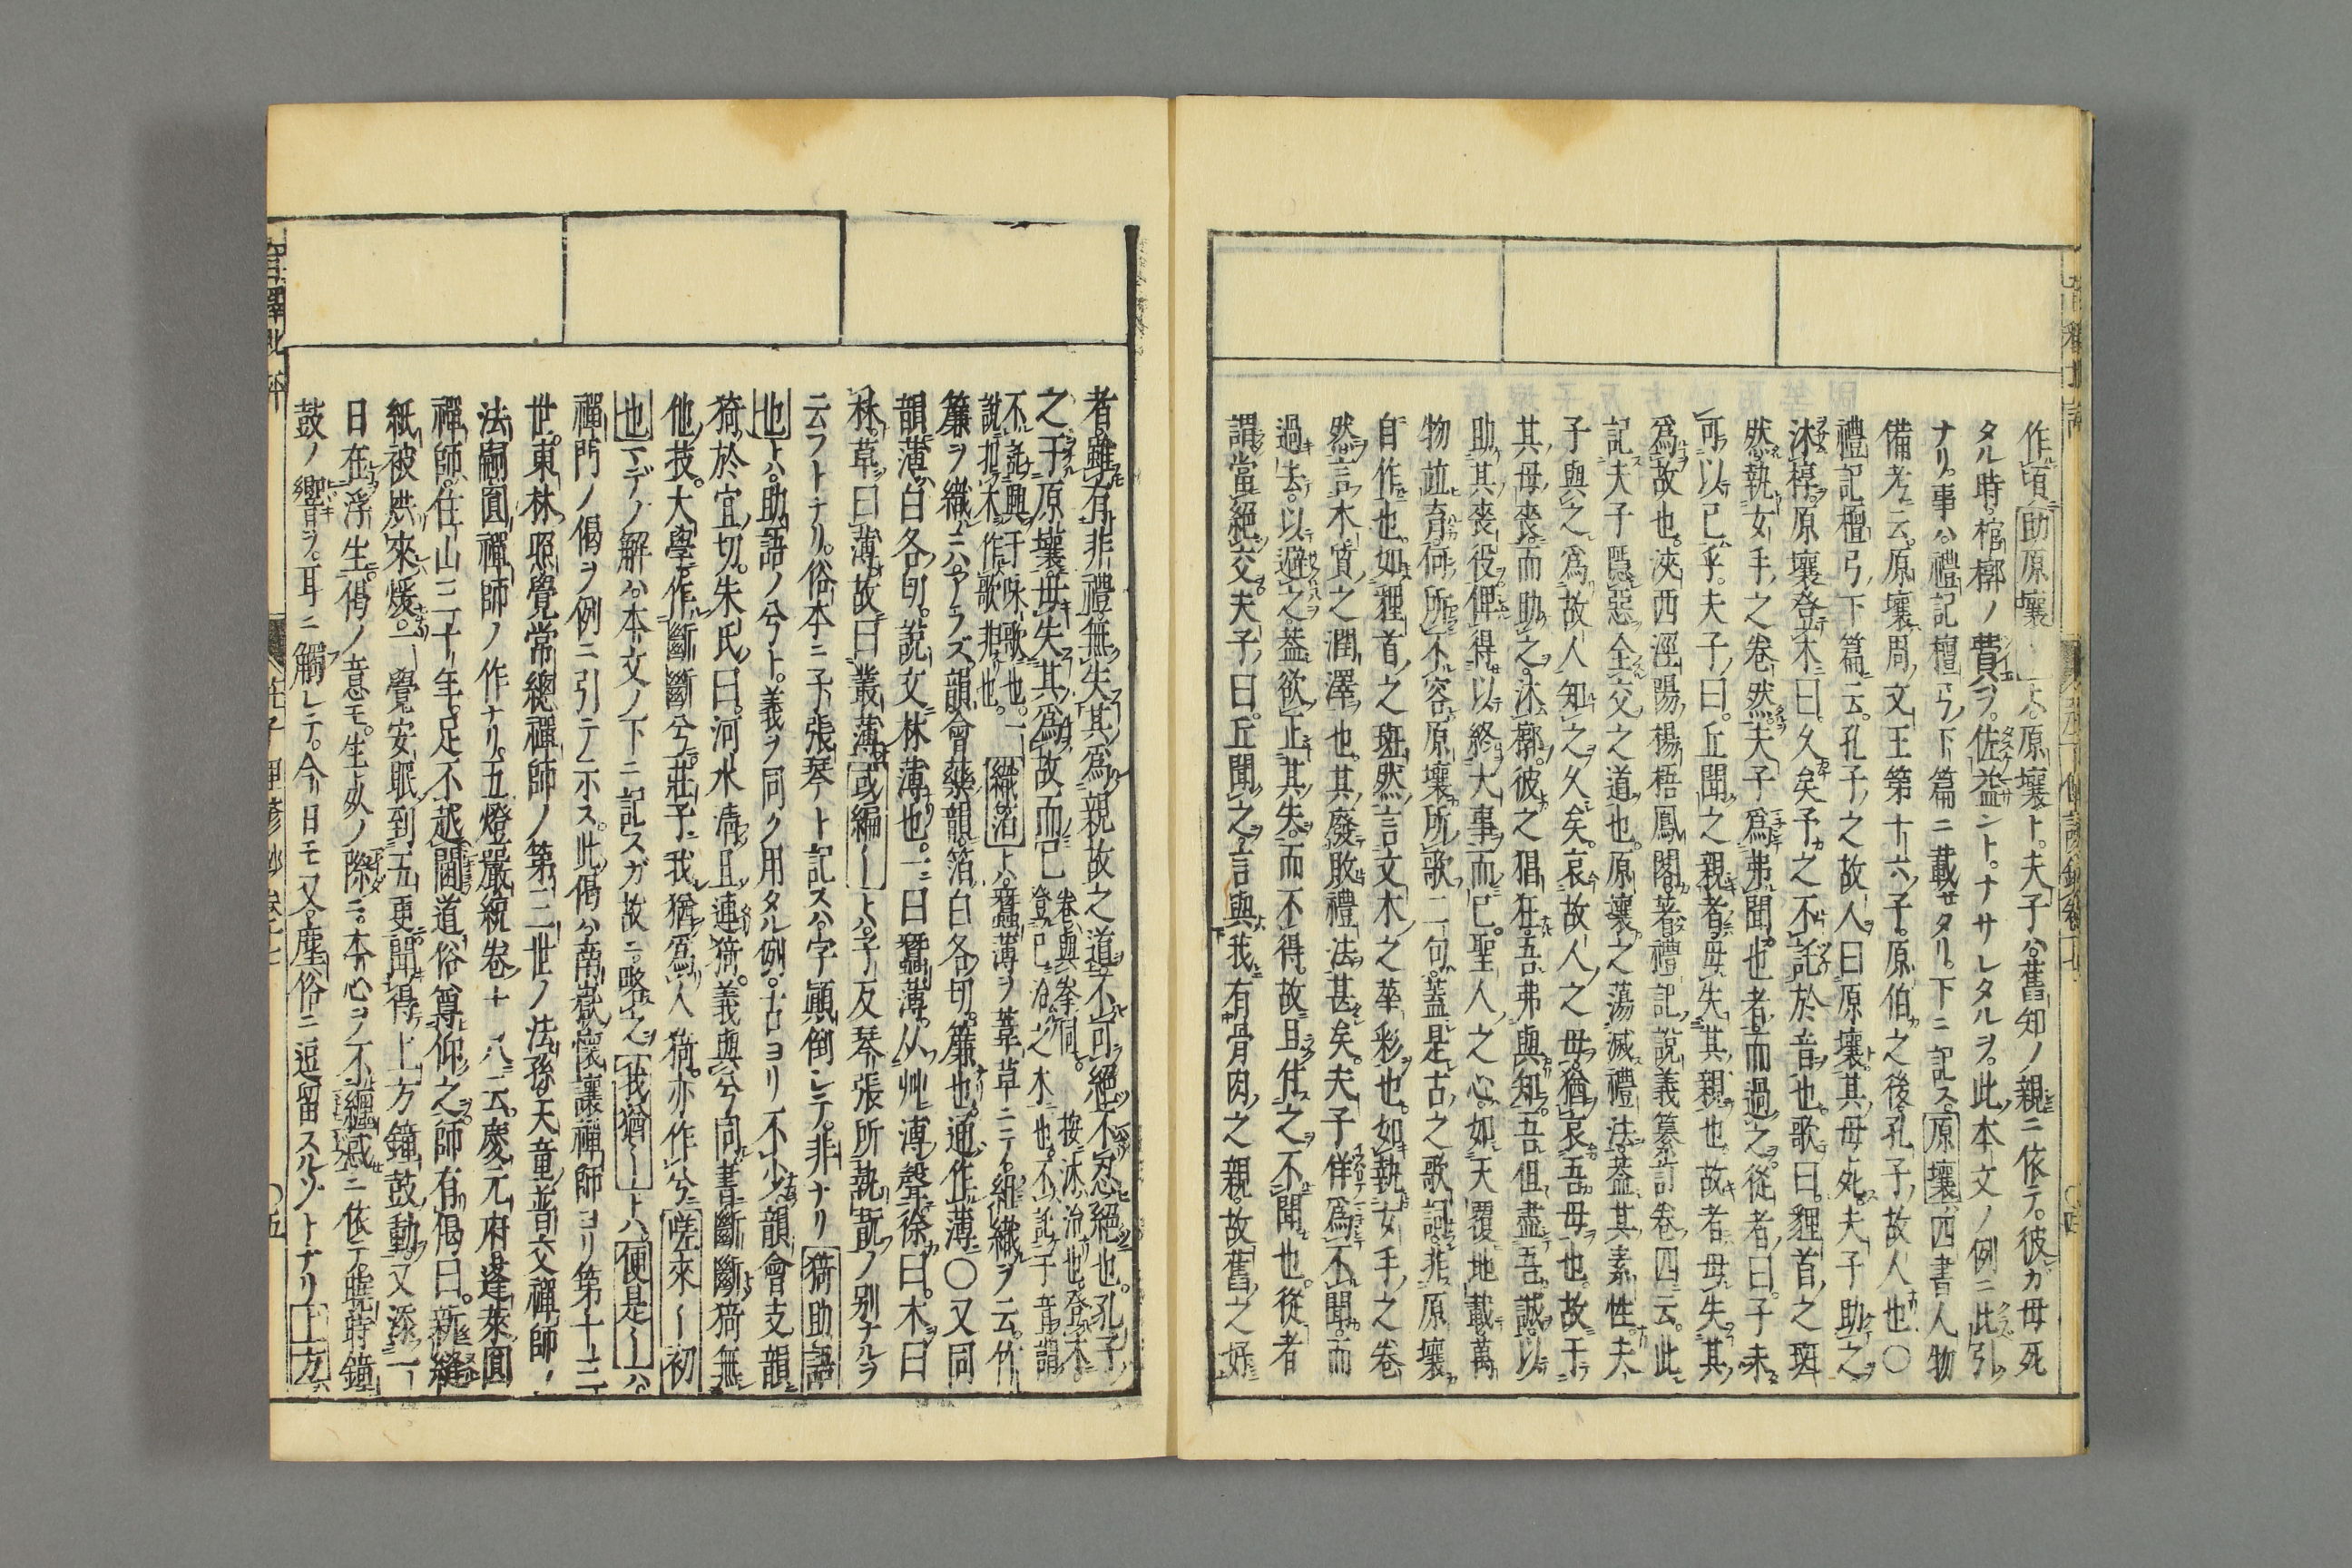 作頃助原壤｜ヿハ原壤ト夫子ハ舊知ノ親ニ依テ彼カ母死
タル時棺槨ノ費ヲ佐益ントナサレタルヲ此本文ノ例ニ此引
ナリ事ハ禮記檀弓下篇ニ載せタリ下ニ記ス原壤四書人物
備考ニ云原壤周文王第十六子原伯之後孔子故人也〇
禮記檀弓下篇云孔子之故人曰原壤其母死夫子助之
沐椁原壤登木曰久矣予之不託於音也歌曰貍首之斑
然執女手之卷然夫子爲弗聞也者而過之從者曰子未
可以已乎夫子曰丘聞之親者毋失其親也故者毋失其
爲故也浹西涇陽楊梧鳳閣著禮記說義纂訂卷四云此
記夫子隱惡全交之道也原壤之蕩滅禮法葢其素性夫
子與之爲故人知之久矣哀故人之母猶哀吾母也故于
其母喪而助之沐槨彼之猖狂吾弗與知吾但盡吾誠以
助其喪役俾得以終大事而已聖人之心如天覆地載萬
物竝育何所不容原壤所歌二句蓋是古之歌詞非原壤
自作也如貍首之斑然言文木之華彩也如執女手之卷
然言木質之潤澤也其廢敗禮法甚矣夫子佯爲不聞而
過去以避之葢欲正其失而不得故且佯之不聞也從者
謂當絕交夫子曰丘聞之言與我有骨肉之親故舊之好
者雖有非禮無失其爲親故之道不可絕不忍絕也孔子
之于原壤毋失其爲故而已卷與拳同登已治之木也不託于音謂按沐治也登木
不託興于咏歌也一說扣木作歌非也織箔ヿハ蠶薄ヲ葦草ニテ組織ヲ云竹
簾ヲ織ニハアラズ韻會藥韻箔白各切簾也通作薄〇又同
韻薄白各切說文林薄也一曰蠶薄从艸溥聲徐曰木曰
林草曰薄故曰叢薄或編｜ヿハ子反琴張所執翫ノ別ナルヲ
云フトナリ俗本ニ子張琴ト記スハ字顚倒シテ非ナリ猗助語
也ヿハ助語ノ兮ト義ヲ同ク用タル例古ヨリ不少韻會支韻
猗於宜切朱氏曰河水淸且漣猗義與兮同書斷斷猗無
他技大學作斷斷兮莊子我猶爲人猗亦作兮嗟來｜初
也マデノ解ハ本文ノ下ニ記スガ故ニ略之我猶｜ヿハ便是｜ハ
禪門ノ偈ヲ例ニ引テ示ス此偈ハ南嶽懷讓禪師ヨリ第十三
世東林照覺常總禪師ノ第三世ノ法孫天童普交禪師ノ
法嗣圓禪師ノ作ナリ五燈嚴統卷十八云慶元府蓬萊圓
禪師住山三十年足不越閫道俗尊仰之師有偈曰新縫
紙被烘來煖一覺安眠到五更聞得上方鐘鼓動又添一
日在浮生偈ノ意モ生死ノ際ニ本心ヲ不纏惑ニ依テ曉時鐘
鼓ノ響ヲ耳ニ觸レテ今日モ又塵俗ニ逗留スルゾトナリ上方